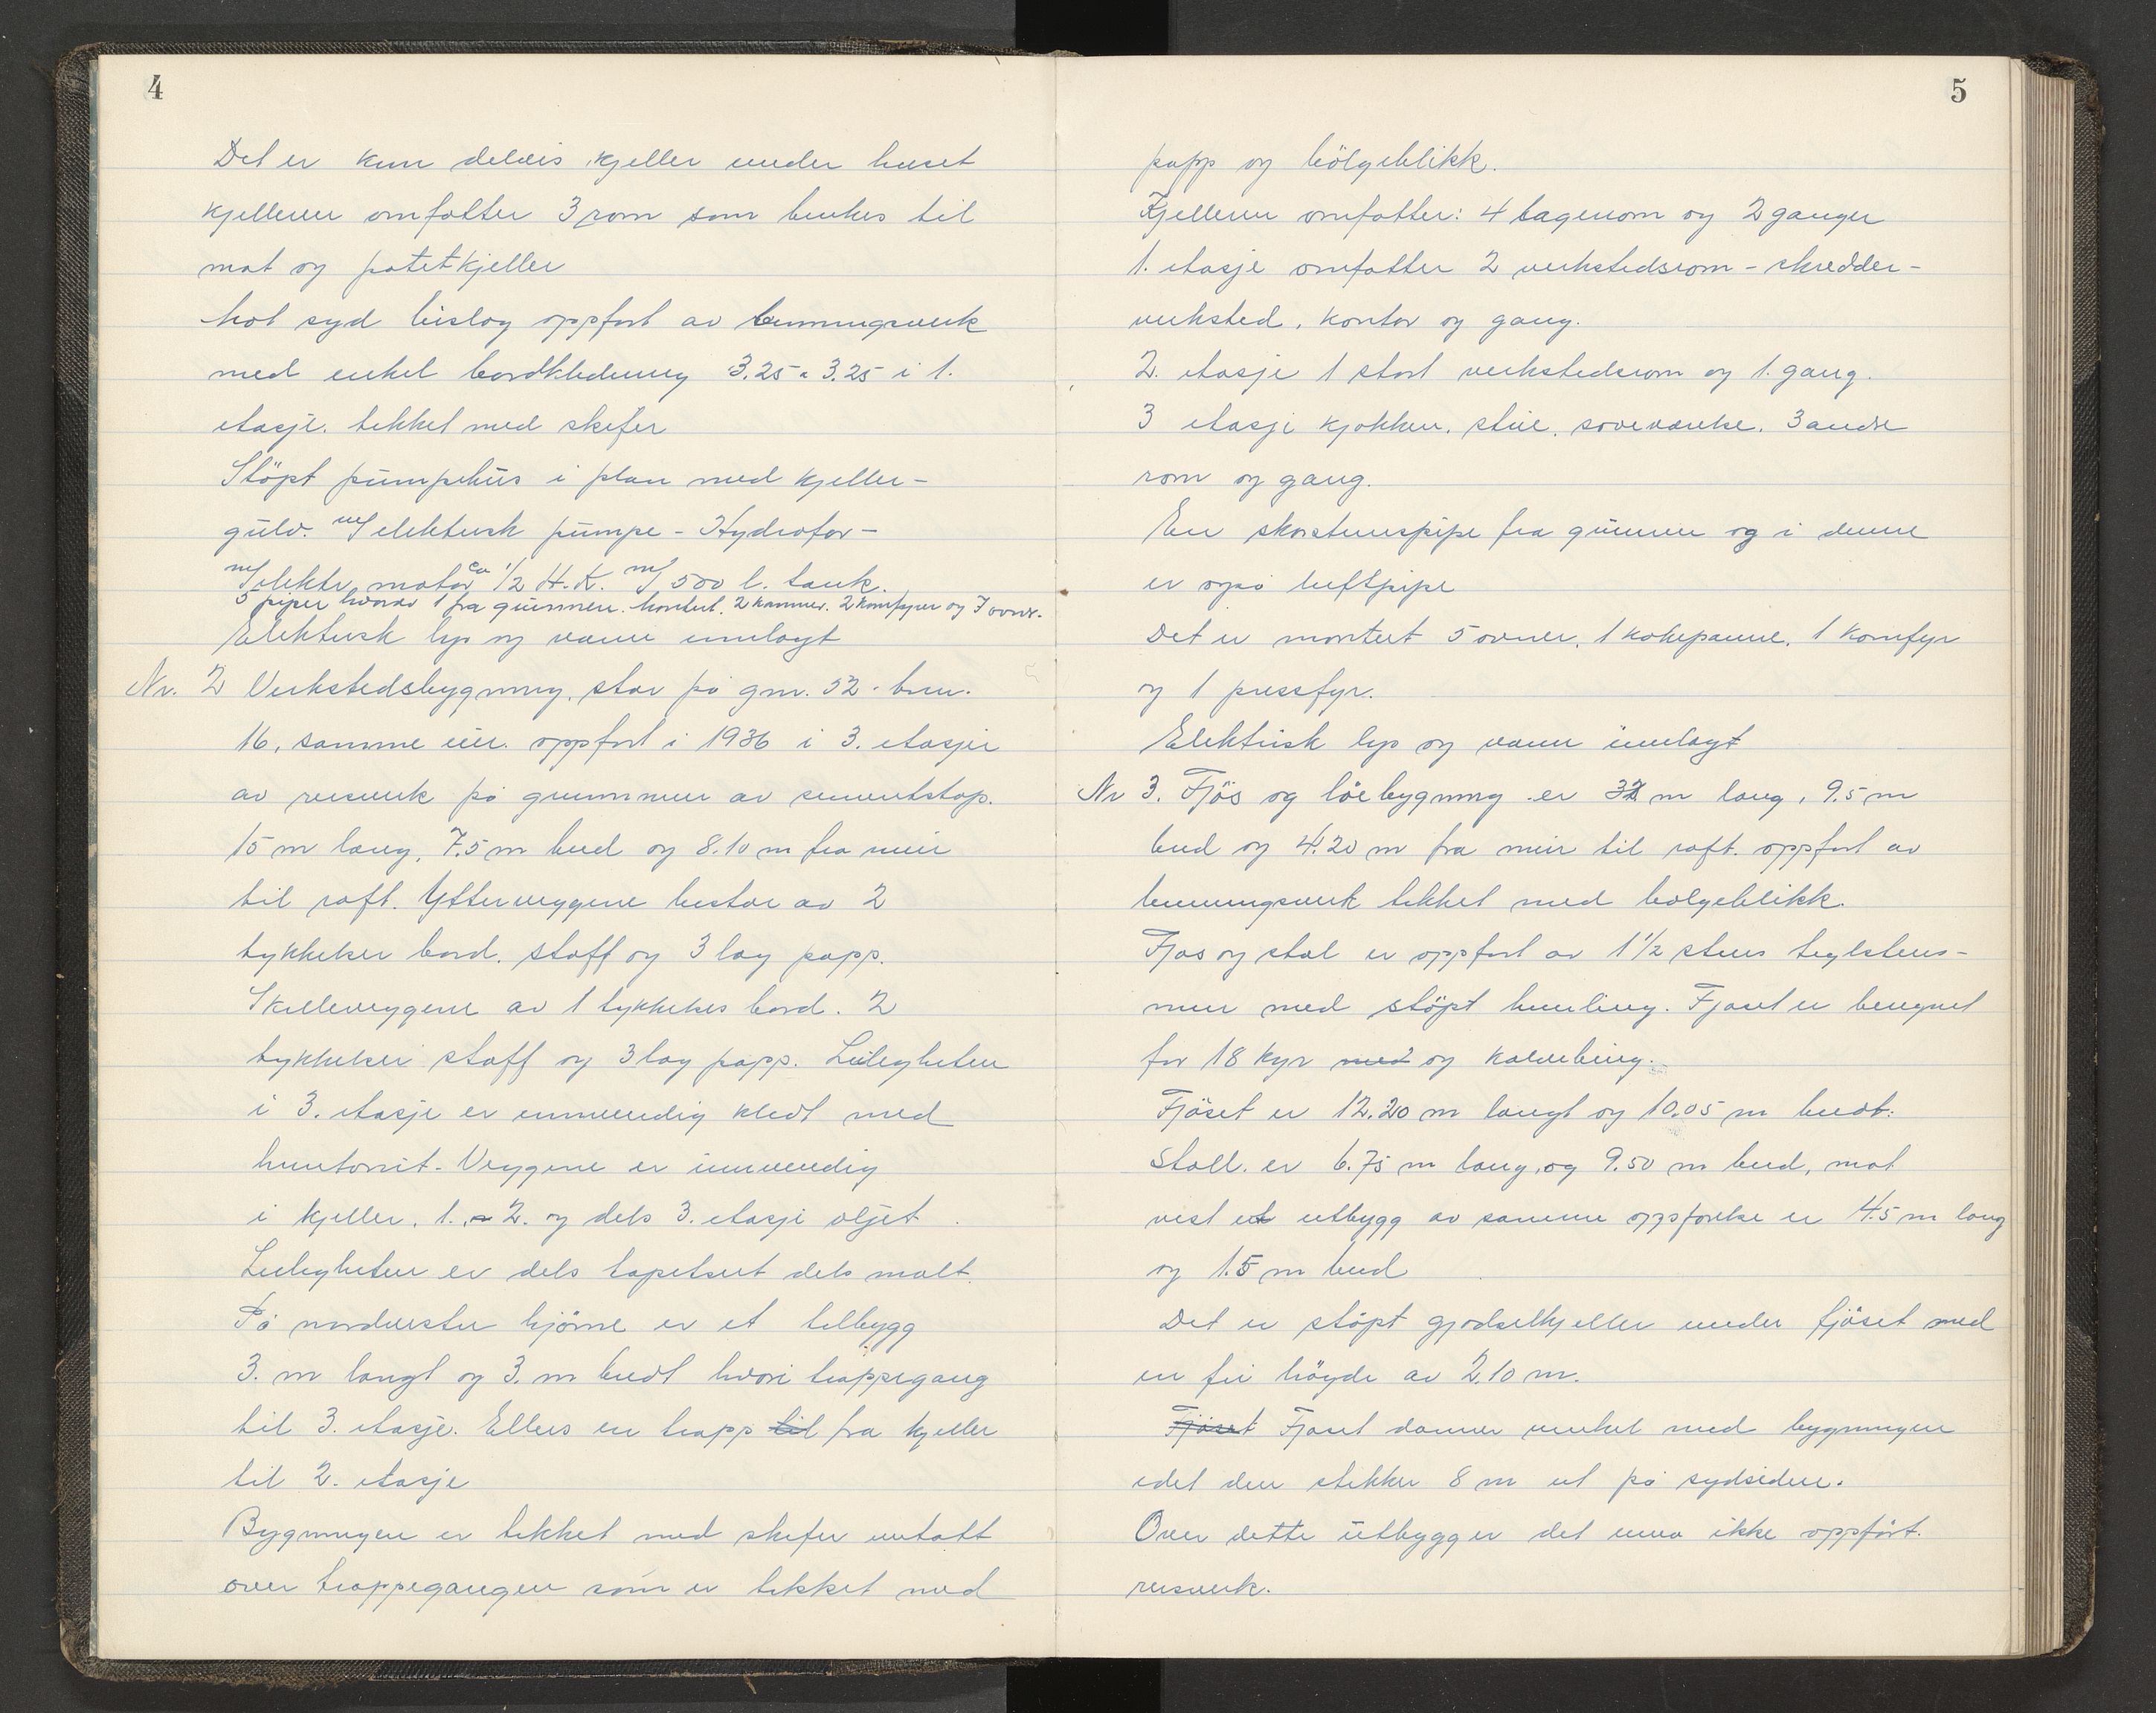 4
Det er kun delvis kjeller under huset
kjelleren omfatter 3 rom som brukes til
mat og potetkjeller
Mot syd bislag oppfört av binningsverk
med enkel bordkledning 3.25 x 3.25 i 1.
etasje. tekket med skifer
Stöpt pumpehus i plan med kjeller-
gulv. m/ elektrisk pumpe - Hydrofor -
m/elektr. motor ca 1/2 H.K. m/ 500 l. tank.
5 piper hvorav 1 fra grunnen. Montert. 2 kaminer. 2 komfyrer og 7 ovner.
Elektrisk lys og vann innlagt
Nr. 2 Verkstedsbygning, står på gnr. 52 - bnr.
16, samme eier. oppfört i 1936 i 3. etasjer
av reisverk på grunnmur av sementstöp.
15 m lang, 7.5 m bred og 8.10 m fra mur
til raft. Ytterveggene bestar av 2
tykkelser bord. staff og 3 lag papp.
Skilleveggene av 1 tykkelses bord. 2
tykkelser staff og 3 lag papp. Leiligheten
i 3. etasje er innvendig kledt med
huntonit. Veggene er innvendig
i kjeller, 1., 2. og dels 3. etasje oljet.
Leiligheten er dels tapetsert dels malt.
På nordvestre hjörne er et tilbygg
3. m langt og 3. m bredt hvori trappegang
til 3. etasje. Ellers en trapp til fra kjeller
til 2. etasje
Bygningen er tekket med skifer untatt
over trappegangen som er tekket med
5
papp og bölgeblikk.
Kjelleren omfatter: 4 lagerrom og 2 ganger
1. etasje omfatter 2 verkstedsrom - skredder-
verksted, kontor og gang.
2. etasje 1 stort verkstedsrom og 1. gang.
3 etasje kjökken. stue. soveværelse. 3 andre
rom og gang.
En skorstenspipe fra grunnen og i denne
er også luftpipe
Det er montert 5 ovner, 1 kokepanne, 1 komfyr
og 1 pressfyr.
Elektrisk lys og vann innlagt
Nr 3. Fjös og låebygning er 32 m lang, 9.5 m
bred og 4.20 m fra mur til raft. oppfört av
binningsverk tekket med bolgeblikk.
Fjos og stal er oppfört av 1 1/2 stens teglstens-
mur med stöpt himling. Fjoset er beregnet
for 18 kyr med og kalvebing.
Fjöset er 12.20 m langt og 10.05 m bredt.
Stall. er 6.75 m lang, og 9.50 m bred, mot
vest et utbygg av samme oppförelse er 4.5 m lang
og 1.5 m bred
Det er stöpt gjödselkjeller under fjöset med
en fri höyde av 2.10 m.
Fjöset Fjoset danner vinkel med bygningen
idet den stikker 8 m ut på sydsiden.
Over dette utbygg er det ennå ikke oppfört.
reisverk.